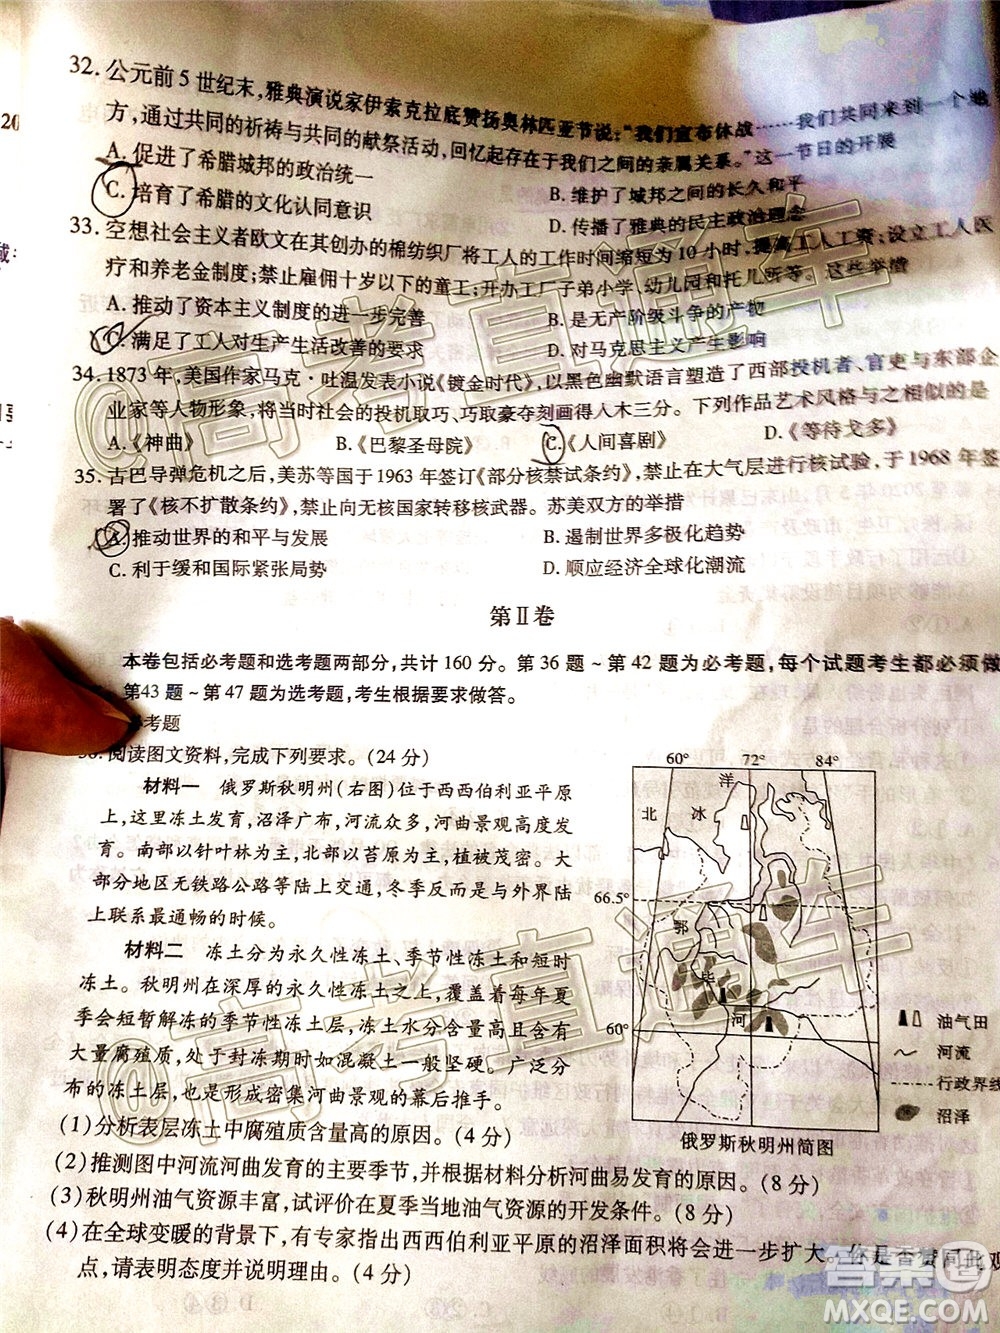 32. 公元前5世纪末,雅典演说家伊索克拉底赞扬奥林匹亚节说:“我们宣布休战……我们共同来到一个地
方,通过共同的祈祷与共同的献祭活动,回忆起存在于我们之间的亲属关系。”这一节日的开展
A. 促进了希腊城邦的政治统一
B. 维护了城邦之间的长久和平
C. 培育了希腊的文化认同意识
D. 传播了雅典的民主政治理念
33. 空想社会主义者欧文在其创办的棉纺织厂将工人的工作时间缩短为10小时,提高工人工资;设立工人医
疗和养老金制度;禁止雇佣十岁以下的童工;开办工厂子弟小学、幼儿园和托儿所等。这些举措
A. 推动了资本主义制度的进一步完善
B. 是无产阶级斗争的产物
C. 满足了工人对生产生活改善的要求
D. 对马克思主义产生影响
34. 1873年,美国作家马克·吐温发表小说《镀金时代》,以黑色幽默语言塑造了西部投机者、官吏与东部企
业家等人物形象,将当时社会的投机取巧、巧取豪夺刻画得入木三分。下列作品艺术风格与之相似的是
A.《神曲》
B.《巴黎圣母院》
C.《人间喜剧》
D.《等待戈多》
35. 古巴导弹危机之后,美苏等国于1963年签订《部分核禁试条约》,禁止在大气层进行核试验,于1968年签
署了《核不扩散条约》,禁止向无核国家转移核武器。苏美双方的举措
A. 推动世界的和平与发展
B. 遏制世界多极化趋势
C. 利于缓和国际紧张局势
D. 顺应经济全球化潮流
第Ⅱ卷
本卷包括必考题和选考题两部分,共计160分。第36题~第42题为必考题,每个试题考生都必须做
第43题~第47题为选考题,考生根据要求做答。
考题
阅读图文资料,完成下列要求。(24分)
材料一 俄罗斯秋明州(右图)位于西西伯利亚平原
上,这里冻土发育,沼泽广布,河流众多,河曲景观高度发
育。南部以针叶林为主,北部以苔原为主,植被茂密。大
部分地区无铁路公路等陆上交通,冬季反而是与外界陆
上联系最通畅的时候。
材料二 冻土分为永久性冻土、季节性冻土和短时
冻土。秋明州在深厚的永久性冻土之上,覆盖着每年夏
季会短暂解冻的季节性冻土层,冻土水分含量高且含有
大量腐殖质,处于封冻期时如混凝土一般坚硬。广泛分
布的冻土层,是形成密集河曲景观的幕后推手。
60° 72° 84°
北 冰 洋
66.5°
鄂
毕
河
60°
油气田
河流
行政界线
沼泽
俄罗斯秋明州简图
(1)分析表层冻土中腐殖质含量高的原因。(4分)
(2)推测图中河流河曲发育的主要季节,并根据材料分析河曲易发育的原因。(8分)
(3)秋明州油气资源丰富,试评价在夏季当地油气资源的开发条件。(8分)
(4)在全球变暖的背景下,有专家指出西西伯利亚平原的沼泽面积将会进一步扩大,你是否赞同此观
点,请表明态度并说明理由。(4分)
@高考直通车
@高考直通车
@高考直通车
答案圈
MXQE.COM